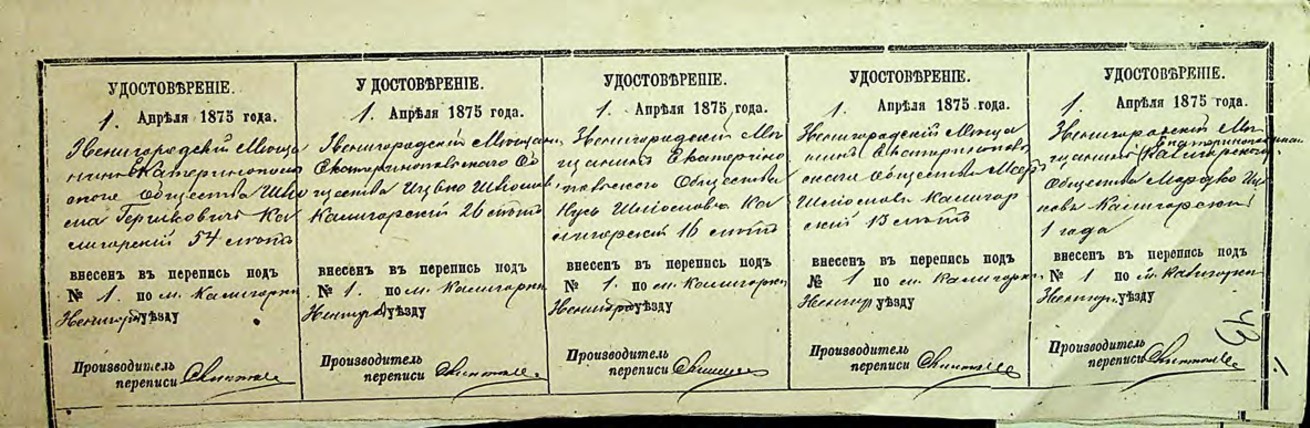 УДОСТОВѢРЕНІЕ.
1. Апрѣля 1875 года.
Звенигородскій Мѣща
нинъ Екатеринополь
скаго Общества Шлі
ома Гершковичъ Ка
лигорскій 54 лѣтъ
внесенъ въ перепись подъ
№ 1. по м. Калигорки
Звенигор уѣзду
Производитель
переписи
УДОСТОВѢРЕНІЕ.
1. Апрѣля 1875 года.
Звенигородскій Мѣщан
Екатеринопольскаго Об
щества Ицько Шліомов
Калигорскій 26 лѣтъ
внесенъ въ перепись подъ
№ 1. по м. Калигорки
Звенигор уѣзду
Производитель
переписи
УДОСТОВѢРЕНІЕ.
1. Апрѣля 1875 года.
Звенигородскій Мѣ
щанинъ Екатерино
польскаго Общества
Нусь Шліомовъ Ка
лигорскій 16 лѣтъ
внесенъ въ перепись подъ
№ 1. по м. Калигорки
Звенигор уѣзду
Производитель
переписи
УДОСТОВѢРЕНІЕ.
1. Апрѣля 1875 года.
Звенигородскій Мѣща
нинъ Екатеринополь
скаго Общества
Шліомовъ Калигор
скій 13 лѣтъ
внесенъ въ перепись подъ
№ 1 по м. Калигорки
Звенигор. уѣзду
Производитель
переписи
УДОСТОВѢРЕНІЕ.
1. Апрѣля 1875 года.
Звенигородскій Мѣ
щанинъ Калигорскаго
Общества Мордко Иц
ковъ Калигорскій
1 года
внесенъ въ перепись подъ
№ 1 по м. Калигорки
Звенигор. уѣзду
Производитель
переписи